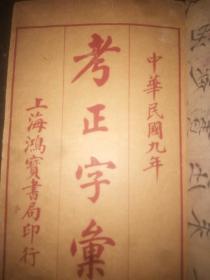 中華民國九年
考正字彙
上海鴻寶書局印行